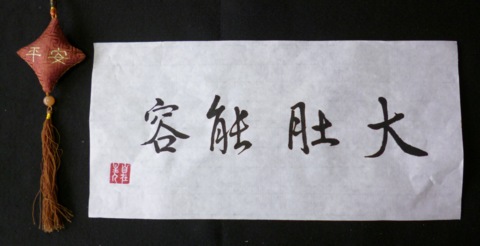 平安
大肚能容